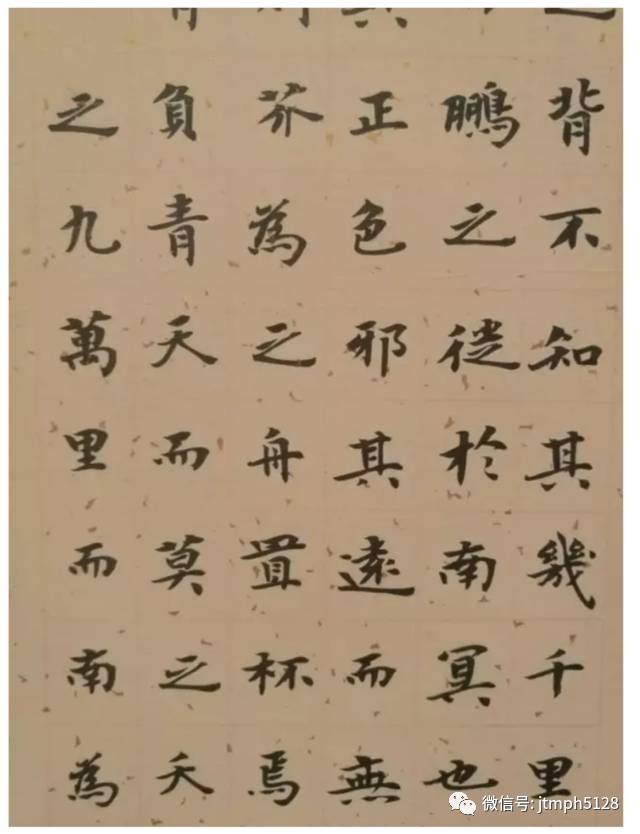 背不知其幾千里
鵬之徙於南冥也
正色邪其遠而無
芥為之舟置杯焉
負青天而莫之夭
之九萬里而南為
微信号: jtmph5128